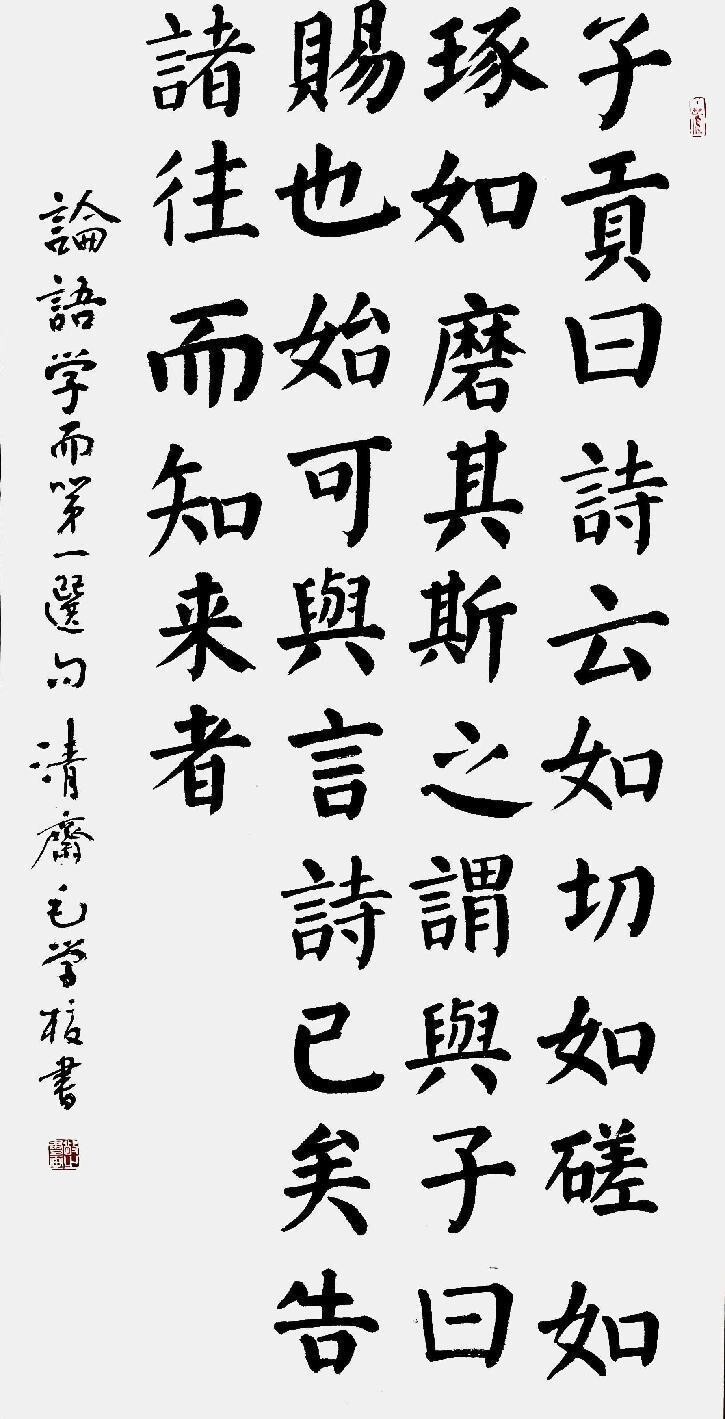 子貢曰詩云如切如磋如
琢如磨其斯之謂與子曰
賜也始可與言詩已矣告
諸往而知来者
論語学而第一選句 清齋毛学校書